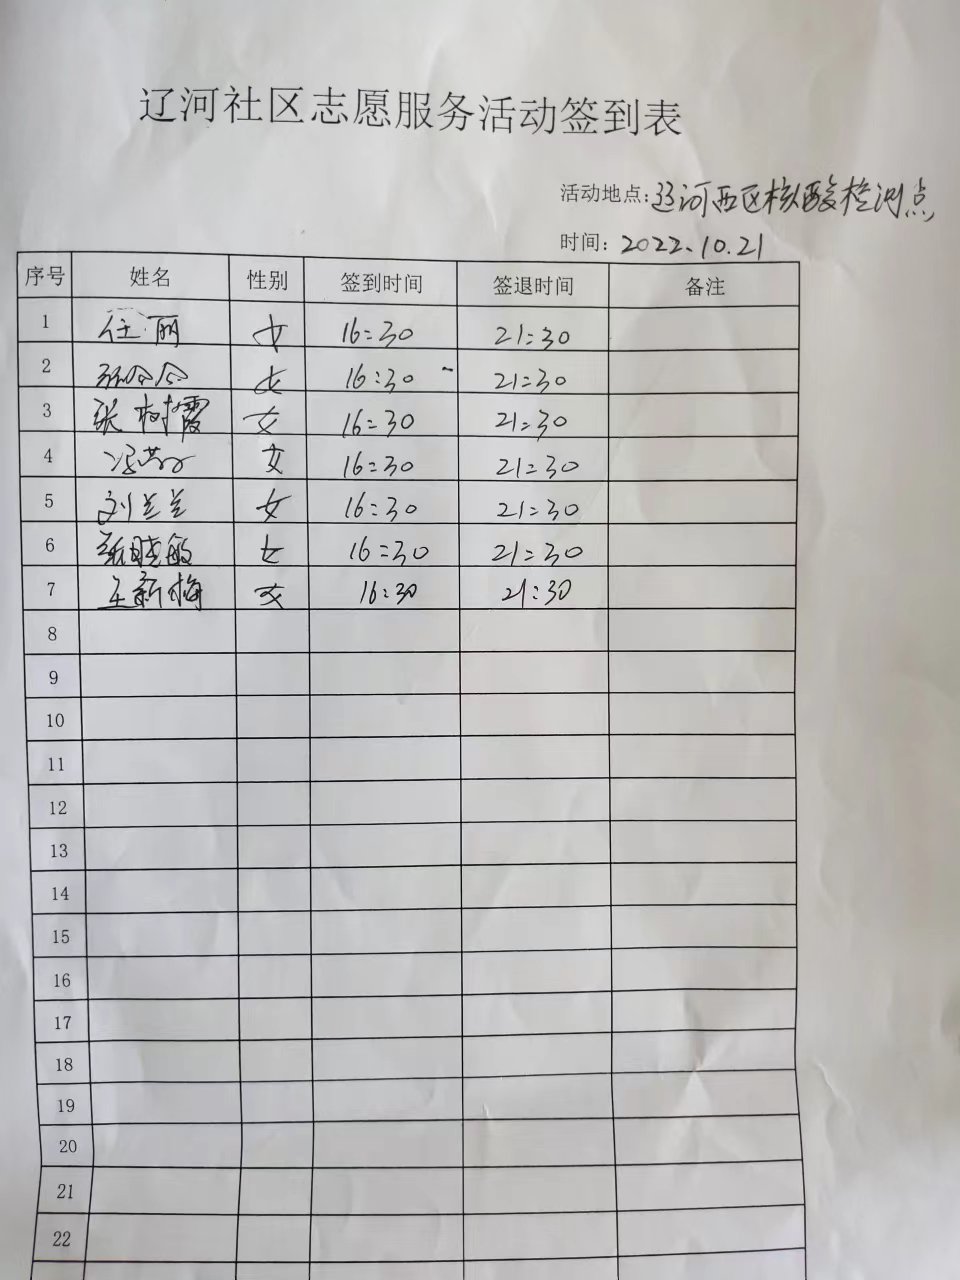 辽河社区志愿服务活动签到表
活动地点:辽河西区核酸检测点
时间: 2022.10.21
序号 姓名 性别 签到时间 签退时间 备注
1 任丽 女 16:30 21:30
2 女 16:30 21:30
3 张树霞 女 16:30 21:30
4 女 16:30 21:30
5 刘兰兰 女 16:30 21:30
6 张晓敏 女 16:30 21:30
7 王新梅 女 16:30 21:30
8
9
10
11
12
13
14
15
16
17
18
19
20
21
22